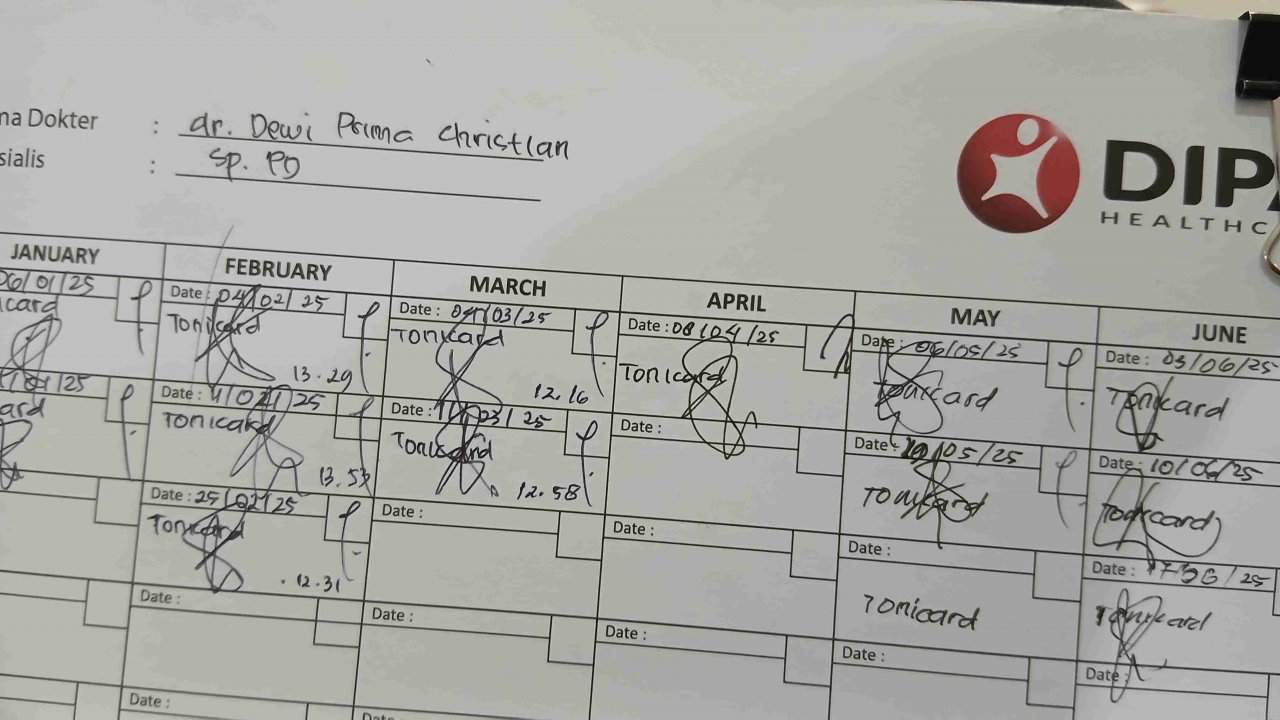 ma Dokter : dr. Dewi Prima Christian
sialis : Sp. PD
DIPA
HEALTHC
JANUARY FEBRUARY MARCH APRIL MAY JUNE
06/01/25 Date : 04/02/25 Date : 04/03/25 Date : 08/04/25 Date : 06/05/25 Date : 03/06/25
icard Tonicard Tonicard Tonicard Tonicard Tonicard
13.29 12.16
/25 Date : 11/02/25 Date : 11/03/25 Date : Date : /05/25 Date : 10/06/25
ard Tonicard Tonicard Tonicard Tonicard
13.53 12.58
Date : 25/02/25 Date : Date : Date : Date : /25
Tonicard Tonicard Tonicard
12.31
Date : Date : Date : Date : Date :
Date : Date